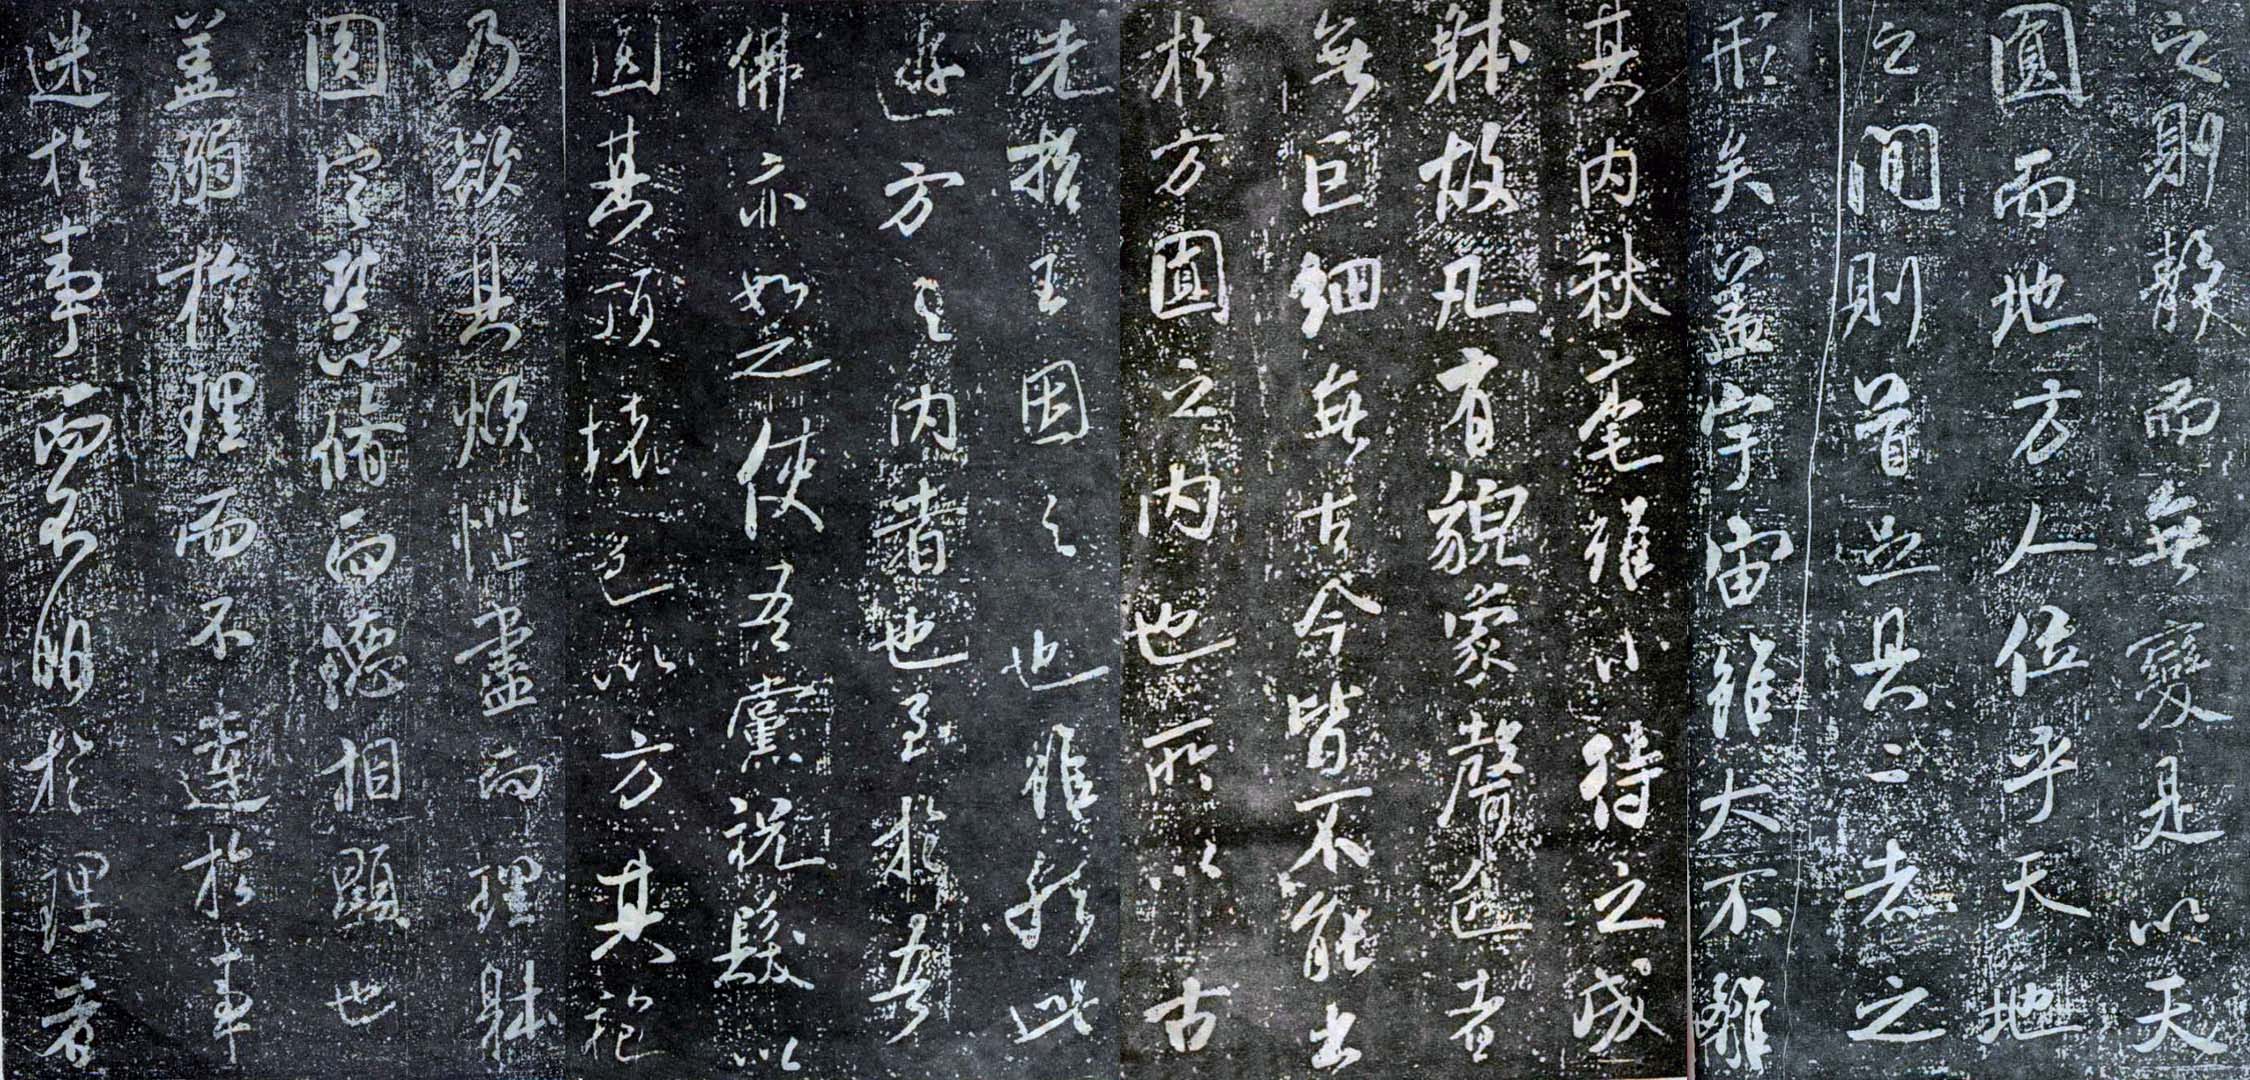 之則靜而無變是以天
圓而地方人位乎天地
之間則首足具二者之
形矣蓋宇宙雖大不離
其内秋毫雖小待之成
躰故凡有貌象聲色者
無巨細無古今皆不能出
於方圓之内也所以古
先哲王因之也雖然此
遊方之内者也至於吾
佛亦如之使吾黨祝髮以
圓其頂壞色以方其袍
乃欲其煩惱盡而理躰
圓定慧脩而德相顯也
盖溺於理而不達於事
迷於事而不明於理者